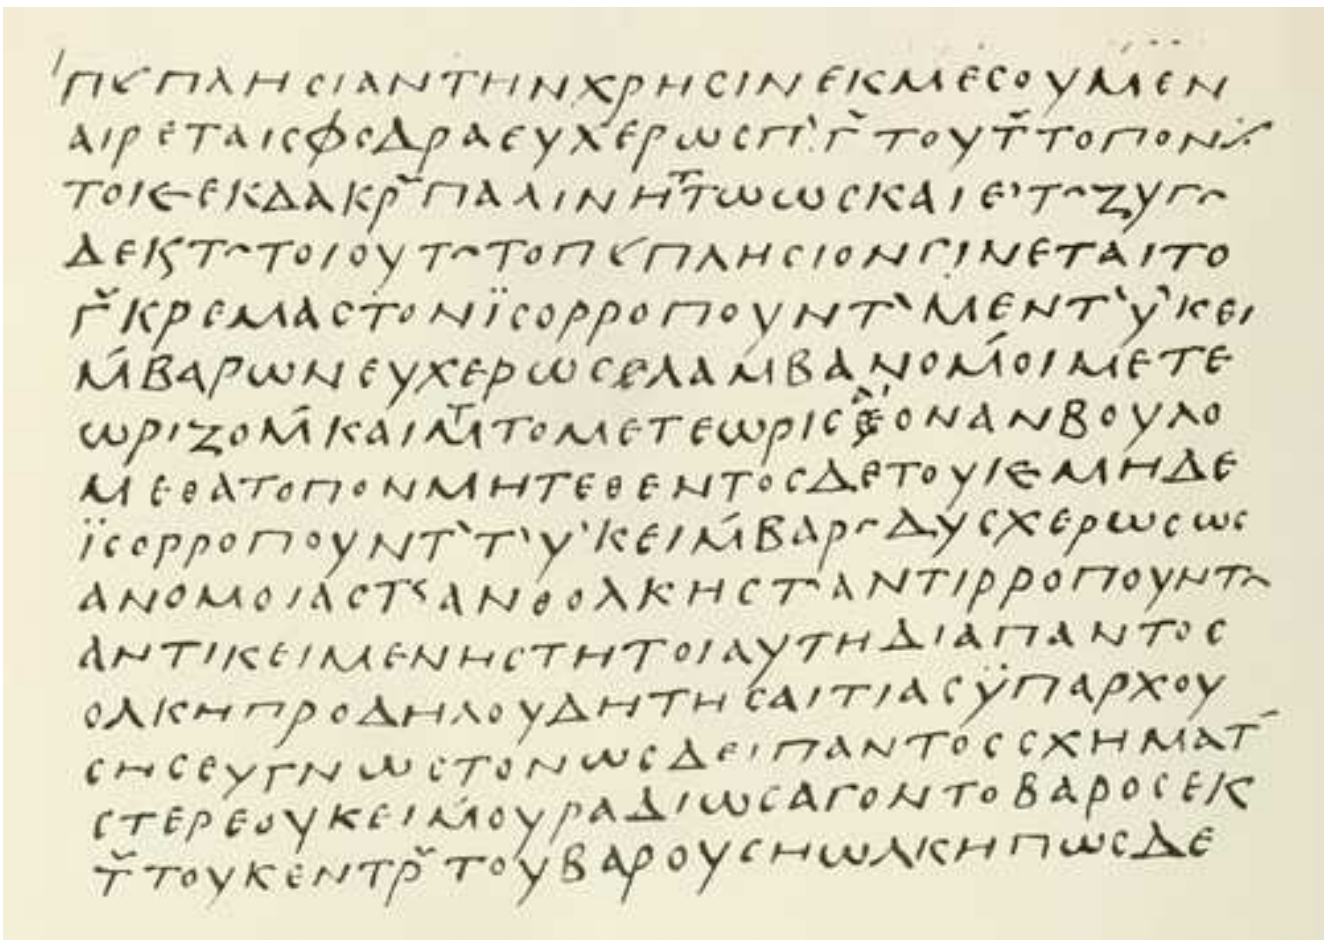 ΠϚΠΛΗϹΙΑΝΤΗΝΧΡΗϹΙΝΕΚΜΕϹΟΥΜΕΝ
ΑΙΡΕΤΑΙϹΦϹΔΡΑΕΥΧΕΡΩϹΠ̀:Γ̆ΤΟΥΤ̆ΤΟΠΟΝ
ΤΟΙϾΕΚΔΑΚΡ̆ΠΑΛΙΝΗΤ̆ΤΩΩϹΚΑΙΕ'Τ~ΖΥΓ~
ΔΕΚϚΤ~ΤΟΙΟΥΤ~ΤΟΠϚΠΛΗϹΙΟΝΓΙΝΕΤΑΙΤΟ
Γ̆ΚΡΕΜΑϹΤΟΝΪϹΟΡΡΟΠΟΥΝΤ`ΜΕΝΤ`Υ`ΚΕΙ
Μ́ΒΑΡΩΝΕΥΧΕΡΩϹΛΑΜΒΑΝΟΜ́ΟΙΜΕΤΕ
ΩΡΙΖΟΜ́ΚΑΙΜ́ΤΟΜΕΤΕΩΡΙϹΟΝΑΝΒΟΥΛΟ
ΜΕΘΑΤΟΠΟΝΜΗΤΕΘΕΝΤΟϹΔΕΤΟΥΙϾΜΗΔΕ
ΪϹΟΡΡΟΠΟΥΝΤ`Τ`Υ`ΚΕΙΜ́ΒΑΡ~ΔΥϹΧΕΡΩϹΩϹ
ΑΝΟΜΟΙΑϹΤϚΑΝΘΟΛΚΗϹΤ~ΑΝΤΙΡΡΟΠΟΥΝΤ~
ΑΝΤΙΚΕΙΜΕΝΗϹΤΗΤΟΙΑΥΤΗΔΙΑΠΑΝΤΟϹ
ΟΛΚΗΠΡΟΔΗΛΟΥΔΗΤΗϹΑΙΤΙΑϹΫΠΑΡΧΟΥ
ϹΗϹΕΥΓΝΩϹΤΟΝΩϹΔΕΙΠΑΝΤΟϹϹΧΗΜΑΤ~
ϹΤΕΡΕΟΥΚΕΙΜ́ΟΥΡΑΔΙΩϹΑΓΟΝΤΟΒΑΡΟϹΕΚ
Τ̆ΤΟΥΚΕΝΤΡ̆ΤΟΥΒΑΡΟΥϹΗΩΛΚΗΠΩϹΔΕ